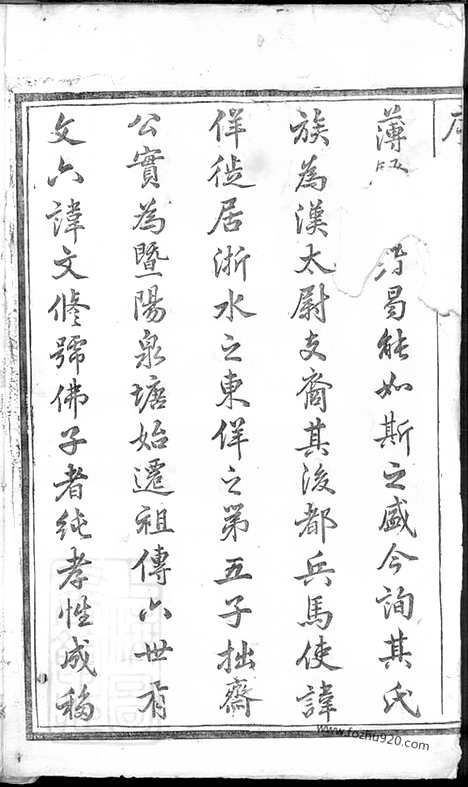 薄曷能如斯之盛今詢其氏
族為漢太尉支裔其後都兵馬使諱
佯徙居浙水之東佯之第五子拙齋
公實為暨陽泉塘始遷祖傳六世有
文六諱文修號佛子者純孝性成移
www.fozhu920.com